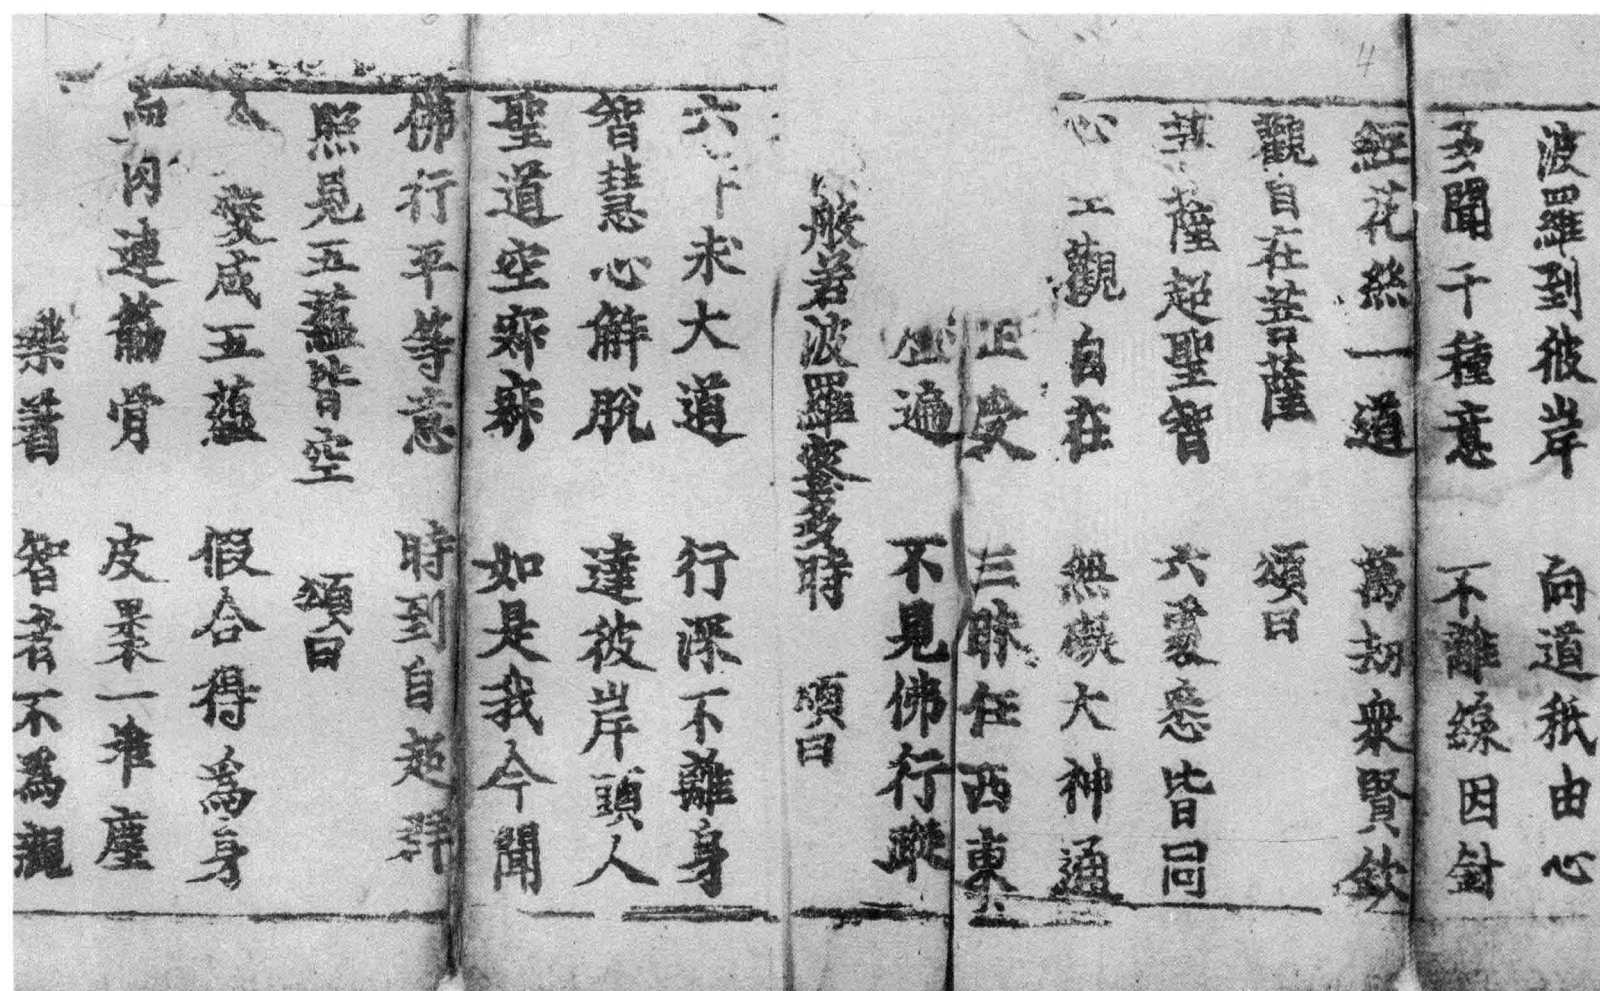 波羅到彼岸 向道秖由心
多聞千種意 不離線因針
經花絲一道 萬劫衆賢欽
觀自在菩薩 頌曰
菩薩超聖智 六處悉皆同
心 觀自在 無礙大神通
正受 三昧任西東
遍 不見佛行蹤
般若波羅蜜多時 頌曰
六 求大道 行深不離身
智慧心解脫 達彼岸頭人
聖道空寂寂 如是我今聞
佛行平等意 時到自超群
照見五蘊皆空 頌曰
變成五蘊 假合得爲身
肉連筋骨 皮裹一堆塵
樂著 智者不爲親